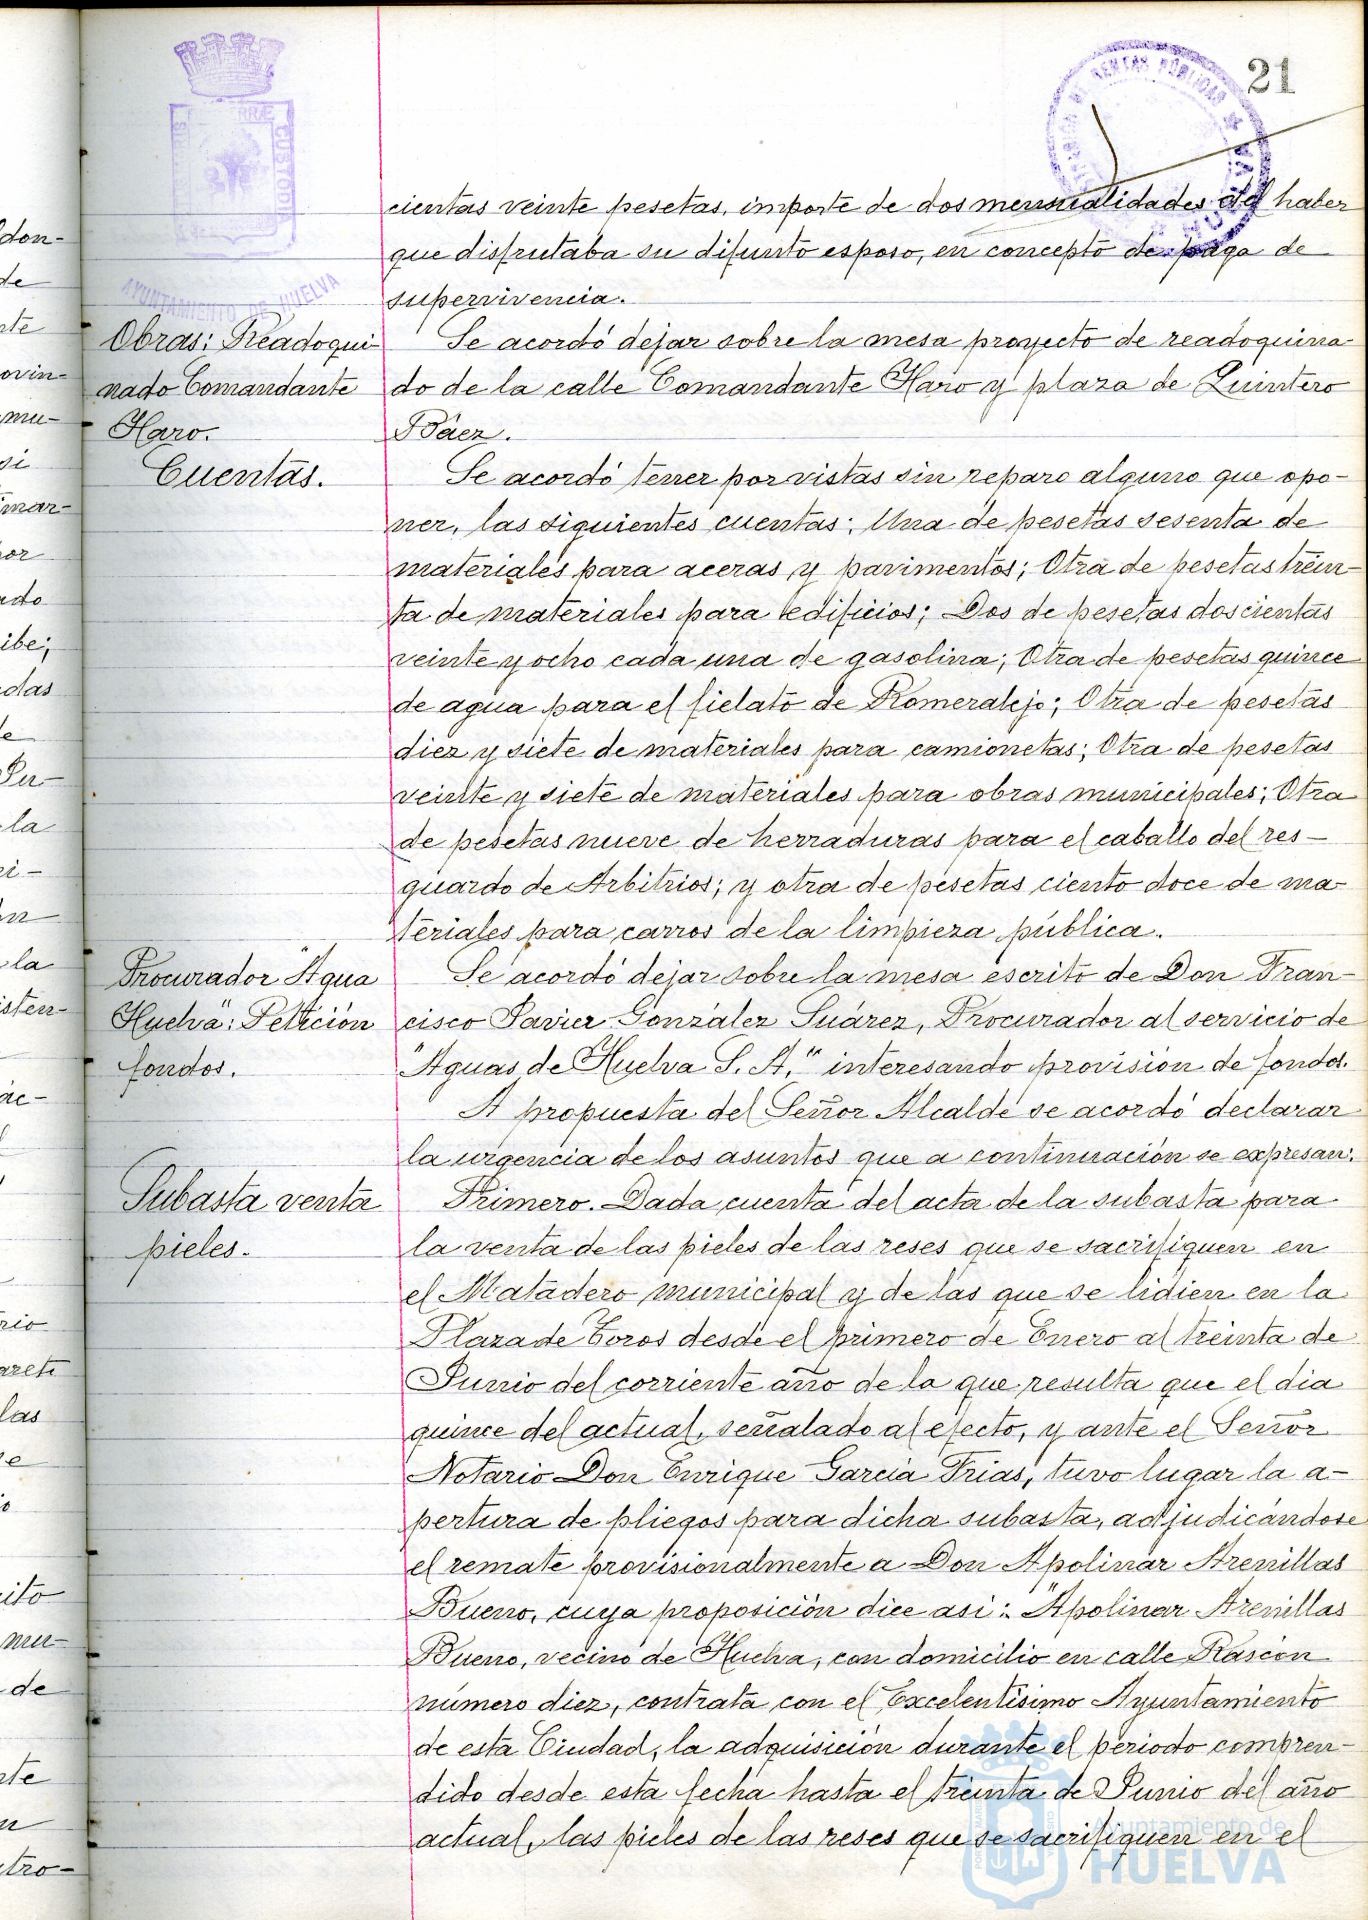 21
AYUNTAMIENTO DE HUELVA
cientas veinte pesetas, importe de dos mensualidades del haber
que disfrutaba su difunto esposo, en concepto de paga de
supervivencia.
Obras: Readoqui-
nado Comandante
Haro.
Se acordó dejar sobre la mesa proyecto de readoquina-
do de la calle Comandante Haro y plaza de Quintero
Báez.
Cuentas.
Se acordó tener por vistas sin reparo alguno que opo-
ner, las siguientes cuentas: Una de pesetas sesenta de
materiales para aceras y pavimentos; Otra de pesetas trein-
ta de materiales para edificios; Dos de pesetas doscientas
veinte y ocho cada una de gasolina; Otra de pesetas quince
de agua para el fielato de Romeralejo; Otra de pesetas
diez y siete de materiales para camionetas; Otra de pesetas
veinte y siete de materiales para obras municipales; Otra
de pesetas nueve de herraduras para el caballo del res-
guardo de Arbitrios; y otra de pesetas ciento doce de ma-
teriales para carros de la limpieza pública.
Procurador "Agua
Huelva": Petición
fondos.
Se acordó dejar sobre la mesa escrito de Don Fran-
cisco Javier González Suárez, Procurador al servicio de
"Aguas de Huelva S. A." interesando provisión de fondos.
A propuesta del Señor Alcalde se acordó declarar
la urgencia de los asuntos que a continuación se expresan:
Subasta venta
pieles.
Primero. Dada cuenta del acta de la subasta para
la venta de las pieles de las reses que se sacrifiquen en
el Matadero municipal y de las que se lidien en la
Plaza de Toros desde el primero de Enero al treinta de
Junio del corriente año de la que resulta que el dia
quince del actual, señalado al efecto, y ante el Señor
Notario Don Enrique García Frias, tuvo lugar la a-
pertura de pliegos para dicha subasta, adjudicándose
el remate provisionalmente a Don Apolinar Arenillas
Bueno, cuya proposición dice asi: "Apolinar Arenillas
Bueno, vecino de Huelva, con domicilio en calle Rascón
número diez, contrata con el Excelentísimo Ayuntamiento
de esta Ciudad, la adquisición durante el periodo compren-
dido desde esta fecha hasta el treinta de Junio del año
actual, las pieles de las reses que se sacrifiquen en el
Ayuntamiento de
HUELVA